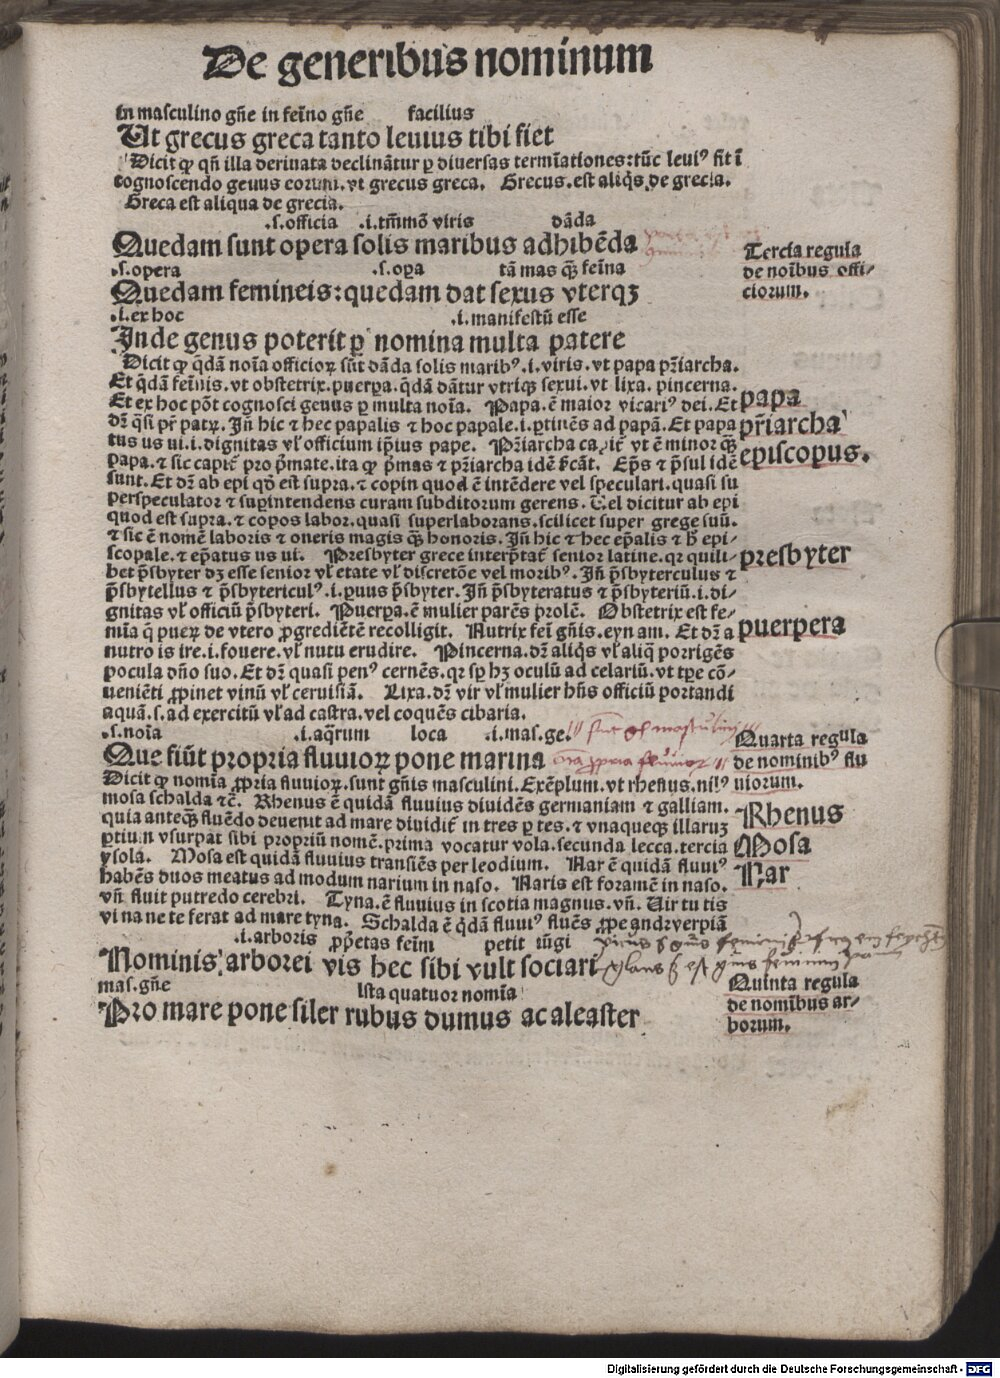 De generibus nominum
in masculino gn̄e in feīno gn̄e facilius
Ut grecus greca tanto levius tibi fiet
Dicit ꝙ qn̄ illa derivata declinātur ꝑ diversas termīationes: tūc levi⁹ fit ī
cognoscendo genus eorum. vt grecus greca. Grecus. est aliq̄s de grecia.
Greca est aliqua de grecia.
.s. officia .i. tm̄mō viris dāda
Quedam sunt opera solis maribus adhibēda
.s. opera .s. oꝑa tā mas q̄ꝫ feīna
Tercia regula
de noībus offi-
ciorum.
Quedam femineis: quedam dat sexus vterqꝫ
.i. ex hoc .i. manifestū esse
Inde genus poterit ꝑ nomina multa patere
Dicit ꝙ q̄dā noīa officioꝝ sūt dāda solis marib⁹ .i. viris. vt papa pr̄iarcha.
Et q̄dā feīnis. vt obstetrix. puerꝑa. q̄dā dātur vtriqꝫ sexui. vt lixa. pincerna.
Et ex hoc pōt cognosci genus ꝑ multa noīa. Papa. ē maior vicari⁹ dei. Et
papa
dr̄ q̄si pr̄ patꝝ. Jn̄ hic ⁊ hec papalis ⁊ hoc papale .i. ꝑtinēs ad papā. Et papa
pr̄iarcha
tus us ui .i. dignitas vl̓ officium ip̄ius pape. Pr̄iarcha capit̄ vt ē minor q̄ꝫ
papa. ⁊ sic capit̄ pro p̄mate. ita ꝙ p̄mas ⁊ pr̄iarcha idē sc̄at. Ep̄s ⁊ p̄sul idē
episcopus.
sunt. Et dr̄ ab epi qd̄ est supra. ⁊ copin quod ē intēdere vel speculari. quasi su
perspeculator ⁊ suꝑintendens curam subditorum gerens. Vel dicitur ab epi
quod est supra. ⁊ copos labor. quasi superlaborans. scilicet super grege suū.
⁊ sic ē nomē laboris ⁊ oneris magis q̄ꝫ honoris. Jn̄ hic ⁊ hec ep̄alis ⁊ h̄ epi-
scopale. ⁊ ep̄atus us ui. Presbyter grece interp̄tat̄ senior latine. qr quili-
presbyter
bet p̄sbyter dꝫ esse senior vl̓ etate vl̓ discretōe vel morib⁹. Jn̄ p̄sbyterculus ⁊
p̄sbytellus ⁊ p̄sbytericul⁹ .i. ꝑuus p̄sbyter. Jn̄ p̄sbyteratus ⁊ p̄sbyteriū .i. di-
gnitas vl̓ officiū p̄sbyteri. Puerꝑa. ē mulier parēs prolē. Obstetrix est fe-
mīa q̄ pueꝝ de vtero ꝓgrediētē recolligit. Nutrix feī gn̄is. eyn am. Et dr̄ a
puerpera
nutro is ire .i. fovere. vl̓ nutu erudire. Pincerna. dr̄ aliq̄s vl̓ aliq̄ porrigēs
pocula dn̄o suo. Et dr̄ quasi pen⁹ cernēs. qr sꝑ hꝫ oculū ad celariū. vt tꝑe cō-
ueniēti ꝓpinet vinū vl̓ cervisiā. Lixa. dr̄ vir vl̓ mulier hn̄s officiū portandi
aquā .s. ad exercitū vl̓ ad castra. vel coquēs cibaria.
.s. noīa .i. aq̄rum loca .i. mas. ge.
Que fiūt propria fluvioꝝ pone marina
Quarta regula
de nominib⁹ flu
viorum.
Dicit ꝙ nomīa ꝓpria fluvioꝝ. sunt gn̄is masculini. Exēplum. vt rhenus. nil⁹
mosa schalda ⁊c̄. Rhenus ē quidā fluvius dividēs germaniam ⁊ galliam.
Rhenus
quia anteq̄ꝫ fluēdo devenit ad mare dividit̄ in tres ꝑtes. ⁊ vnaqueqꝫ illaruꝫ
ꝑtiun vsurpat sibi propriū nomē. prima vocatur vola. secunda lecca. tercia
Mosa
ysola. Mosa est quidā fluvius transiēs per leodium. Nar ē quidā fluvi⁹
Nar
habēs duos meatus ad modum narium in naso. Naris est foramē in naso.
vn̄ fluit putredo cerebri. Tyna. ē fluvius in scotia magnus. vn̄. Vir tu tis
vi na ne te ferat ad mare tyna. Schalda ē q̄dā fluvi⁹ fluēs ꝓpe andꝛverpiā
.i. arboris ꝓp̄etas feīm petit iūgi
Nominis arborei vis hec sibi vult sociari
mas. gn̄e Ista quatuor nomīa
Quinta regula
de nomībus ar-
borum.
Pro mare pone siler rubus dumus ac aleaster
Digitalisierung gefördert durch die Deutsche Forschungsgemeinschaft - DFG